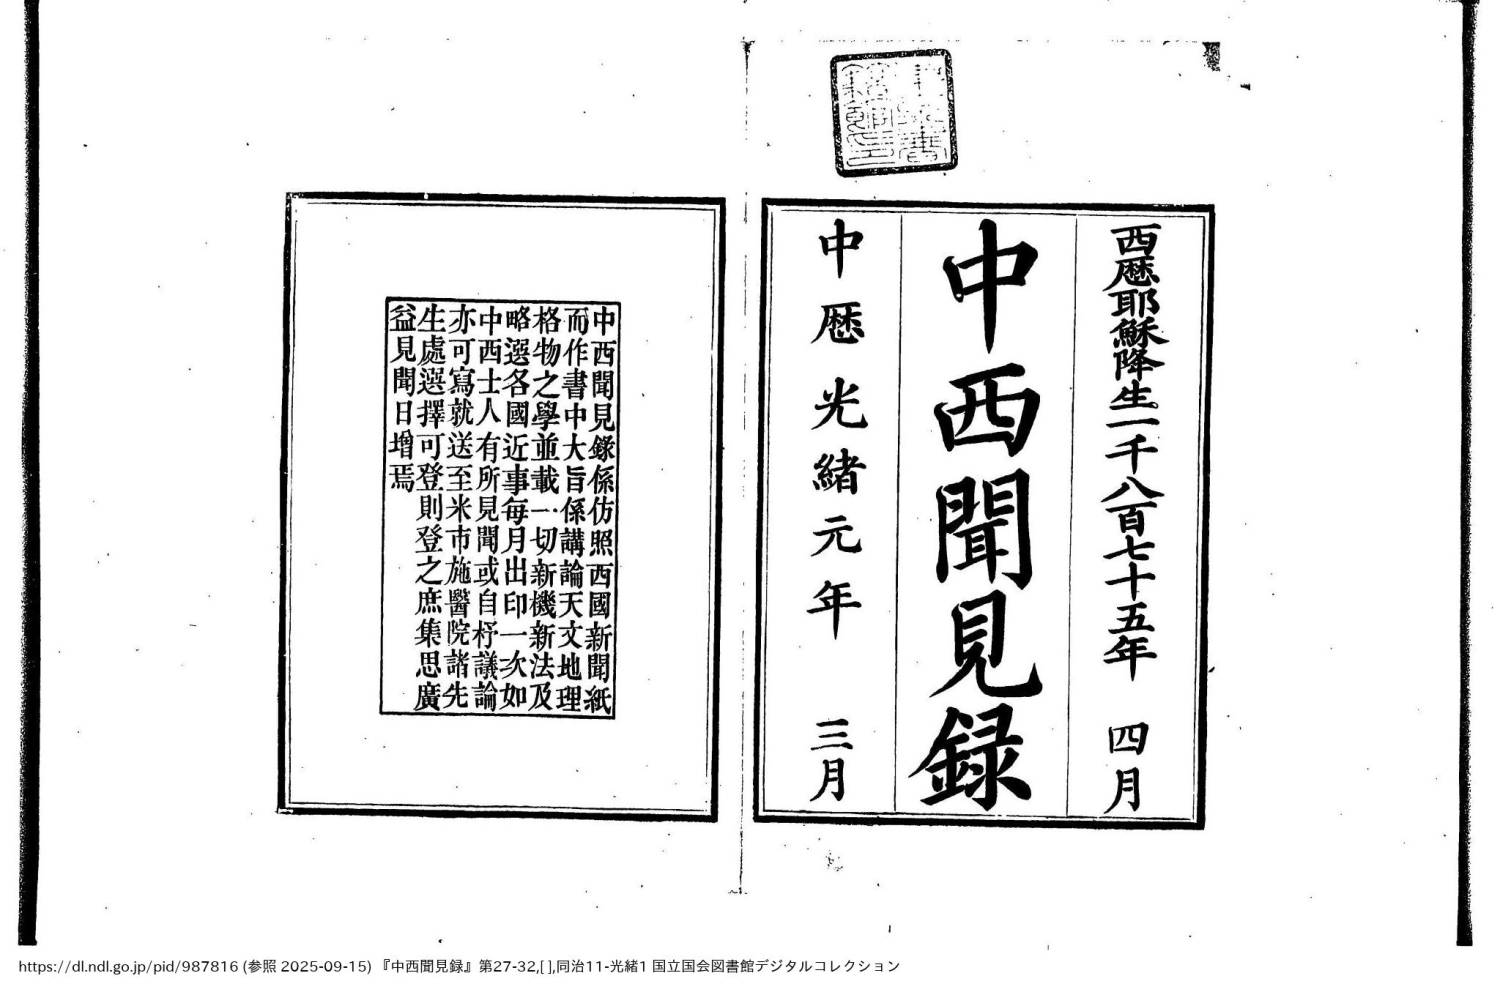 西歴耶穌降生一千八百七十五年 四月
中西聞見録
中歴光緒元年 三月
中西聞見錄係仿照西國新聞紙
而作書中大旨係講論天文地理
格物之學並載一切新機新法及
略選各國近事每月出印一次如
中西士人有所見聞或自杼議論
亦可寫就送至米市施醫院諸先
生處選擇可登則登之庶集思廣
益見聞日增焉
https://dl.ndl.go.jp/pid/987816 (参照 2025-09-15) 『中西聞見録』第27-32,[ ],同治11-光緒1 国立国会図書館デジタルコレクション